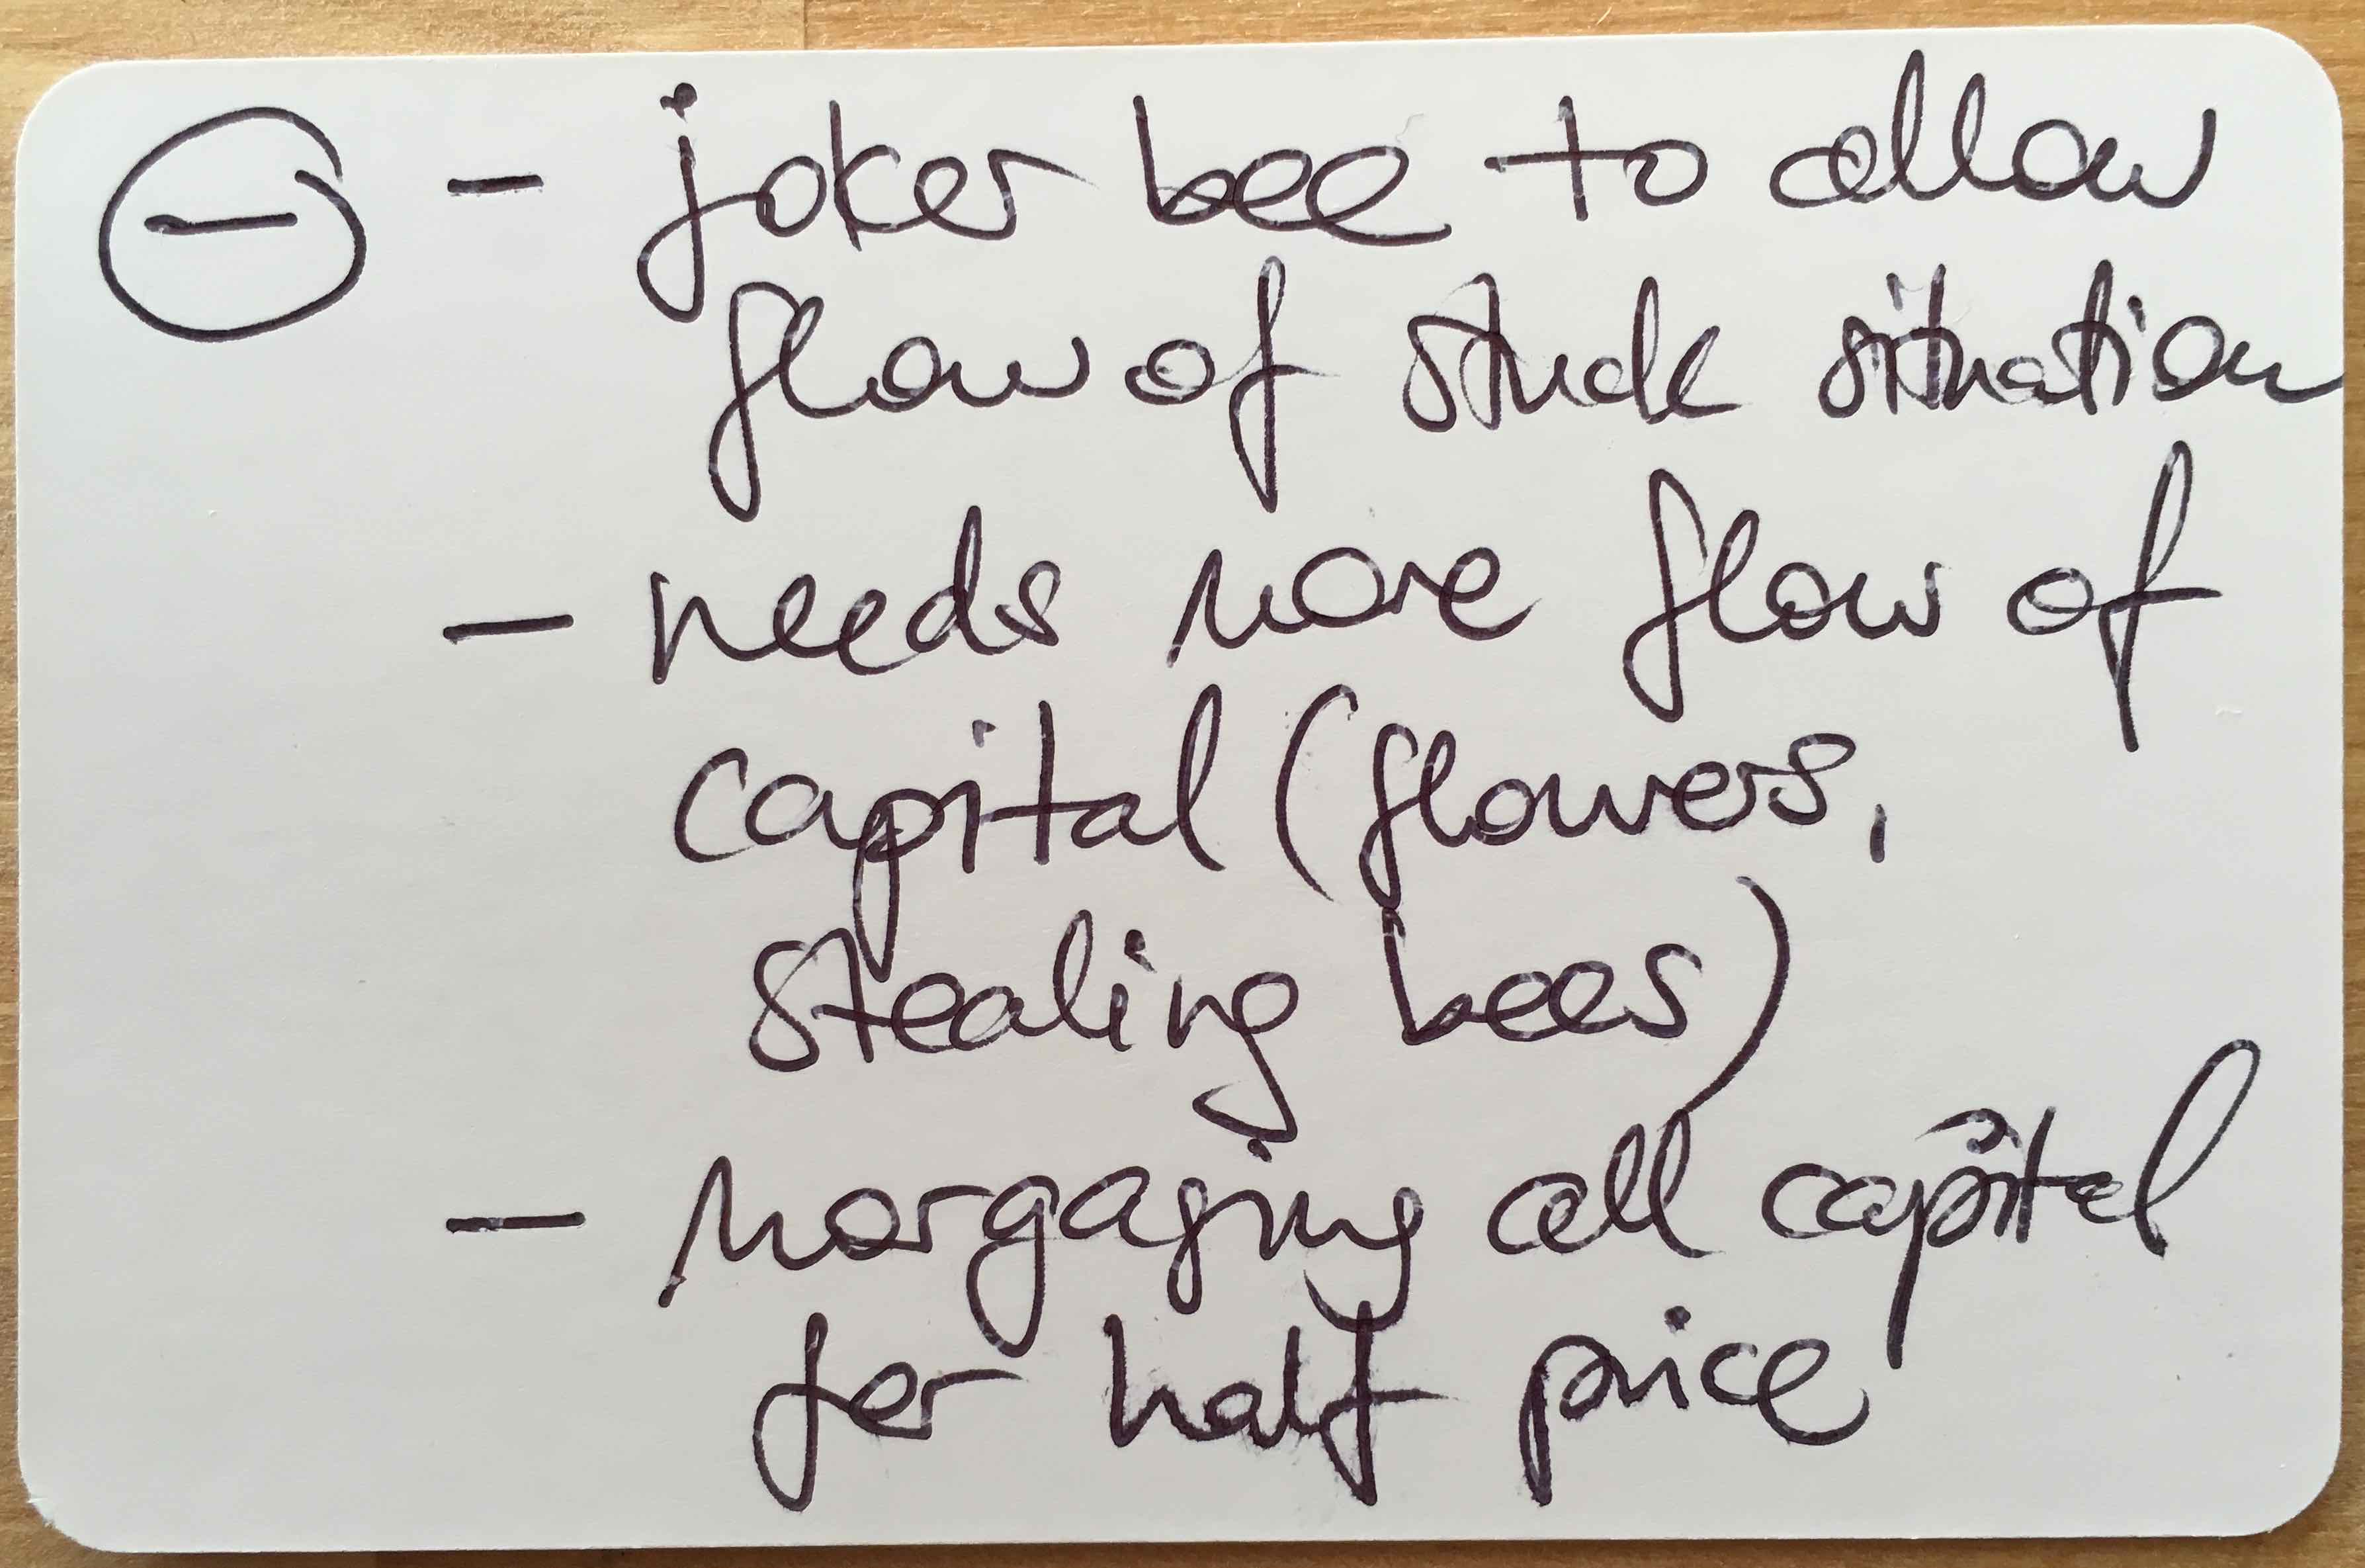 ⊖ - joker bee to allow
flow of stuck situation
- needs more flow of
capital (flowers,
stealing bees)
- morgaging all capital
for half price